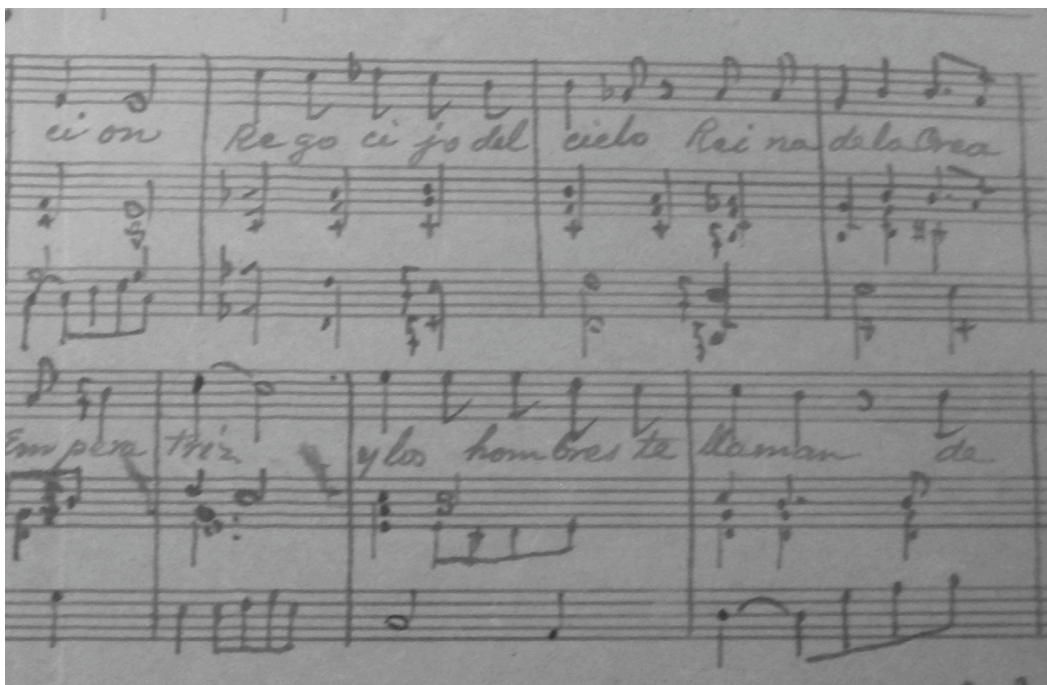 ci on Re go ci jo del cielo Rei na dela Crea
Em pera triz y los hom bres te llaman de